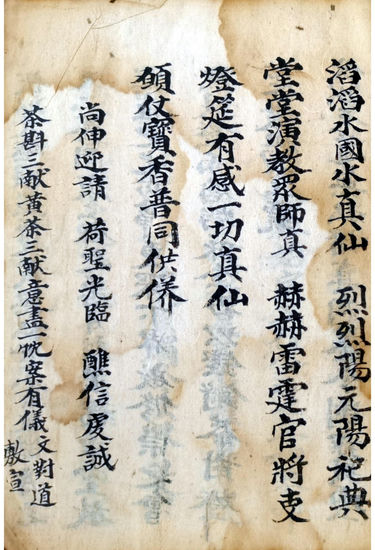 滔滔水國水真仙 烈烈陽元陽祀典
堂堂演教眾師真 赫赫雷霆官將支
燈筵有感一切真仙
頋仗寶香普同供养
尚伸迎請 荷聖光臨 醮信虔誠
茶斟三献黄茶三献意盡一忱案有儀文對道
敷宣